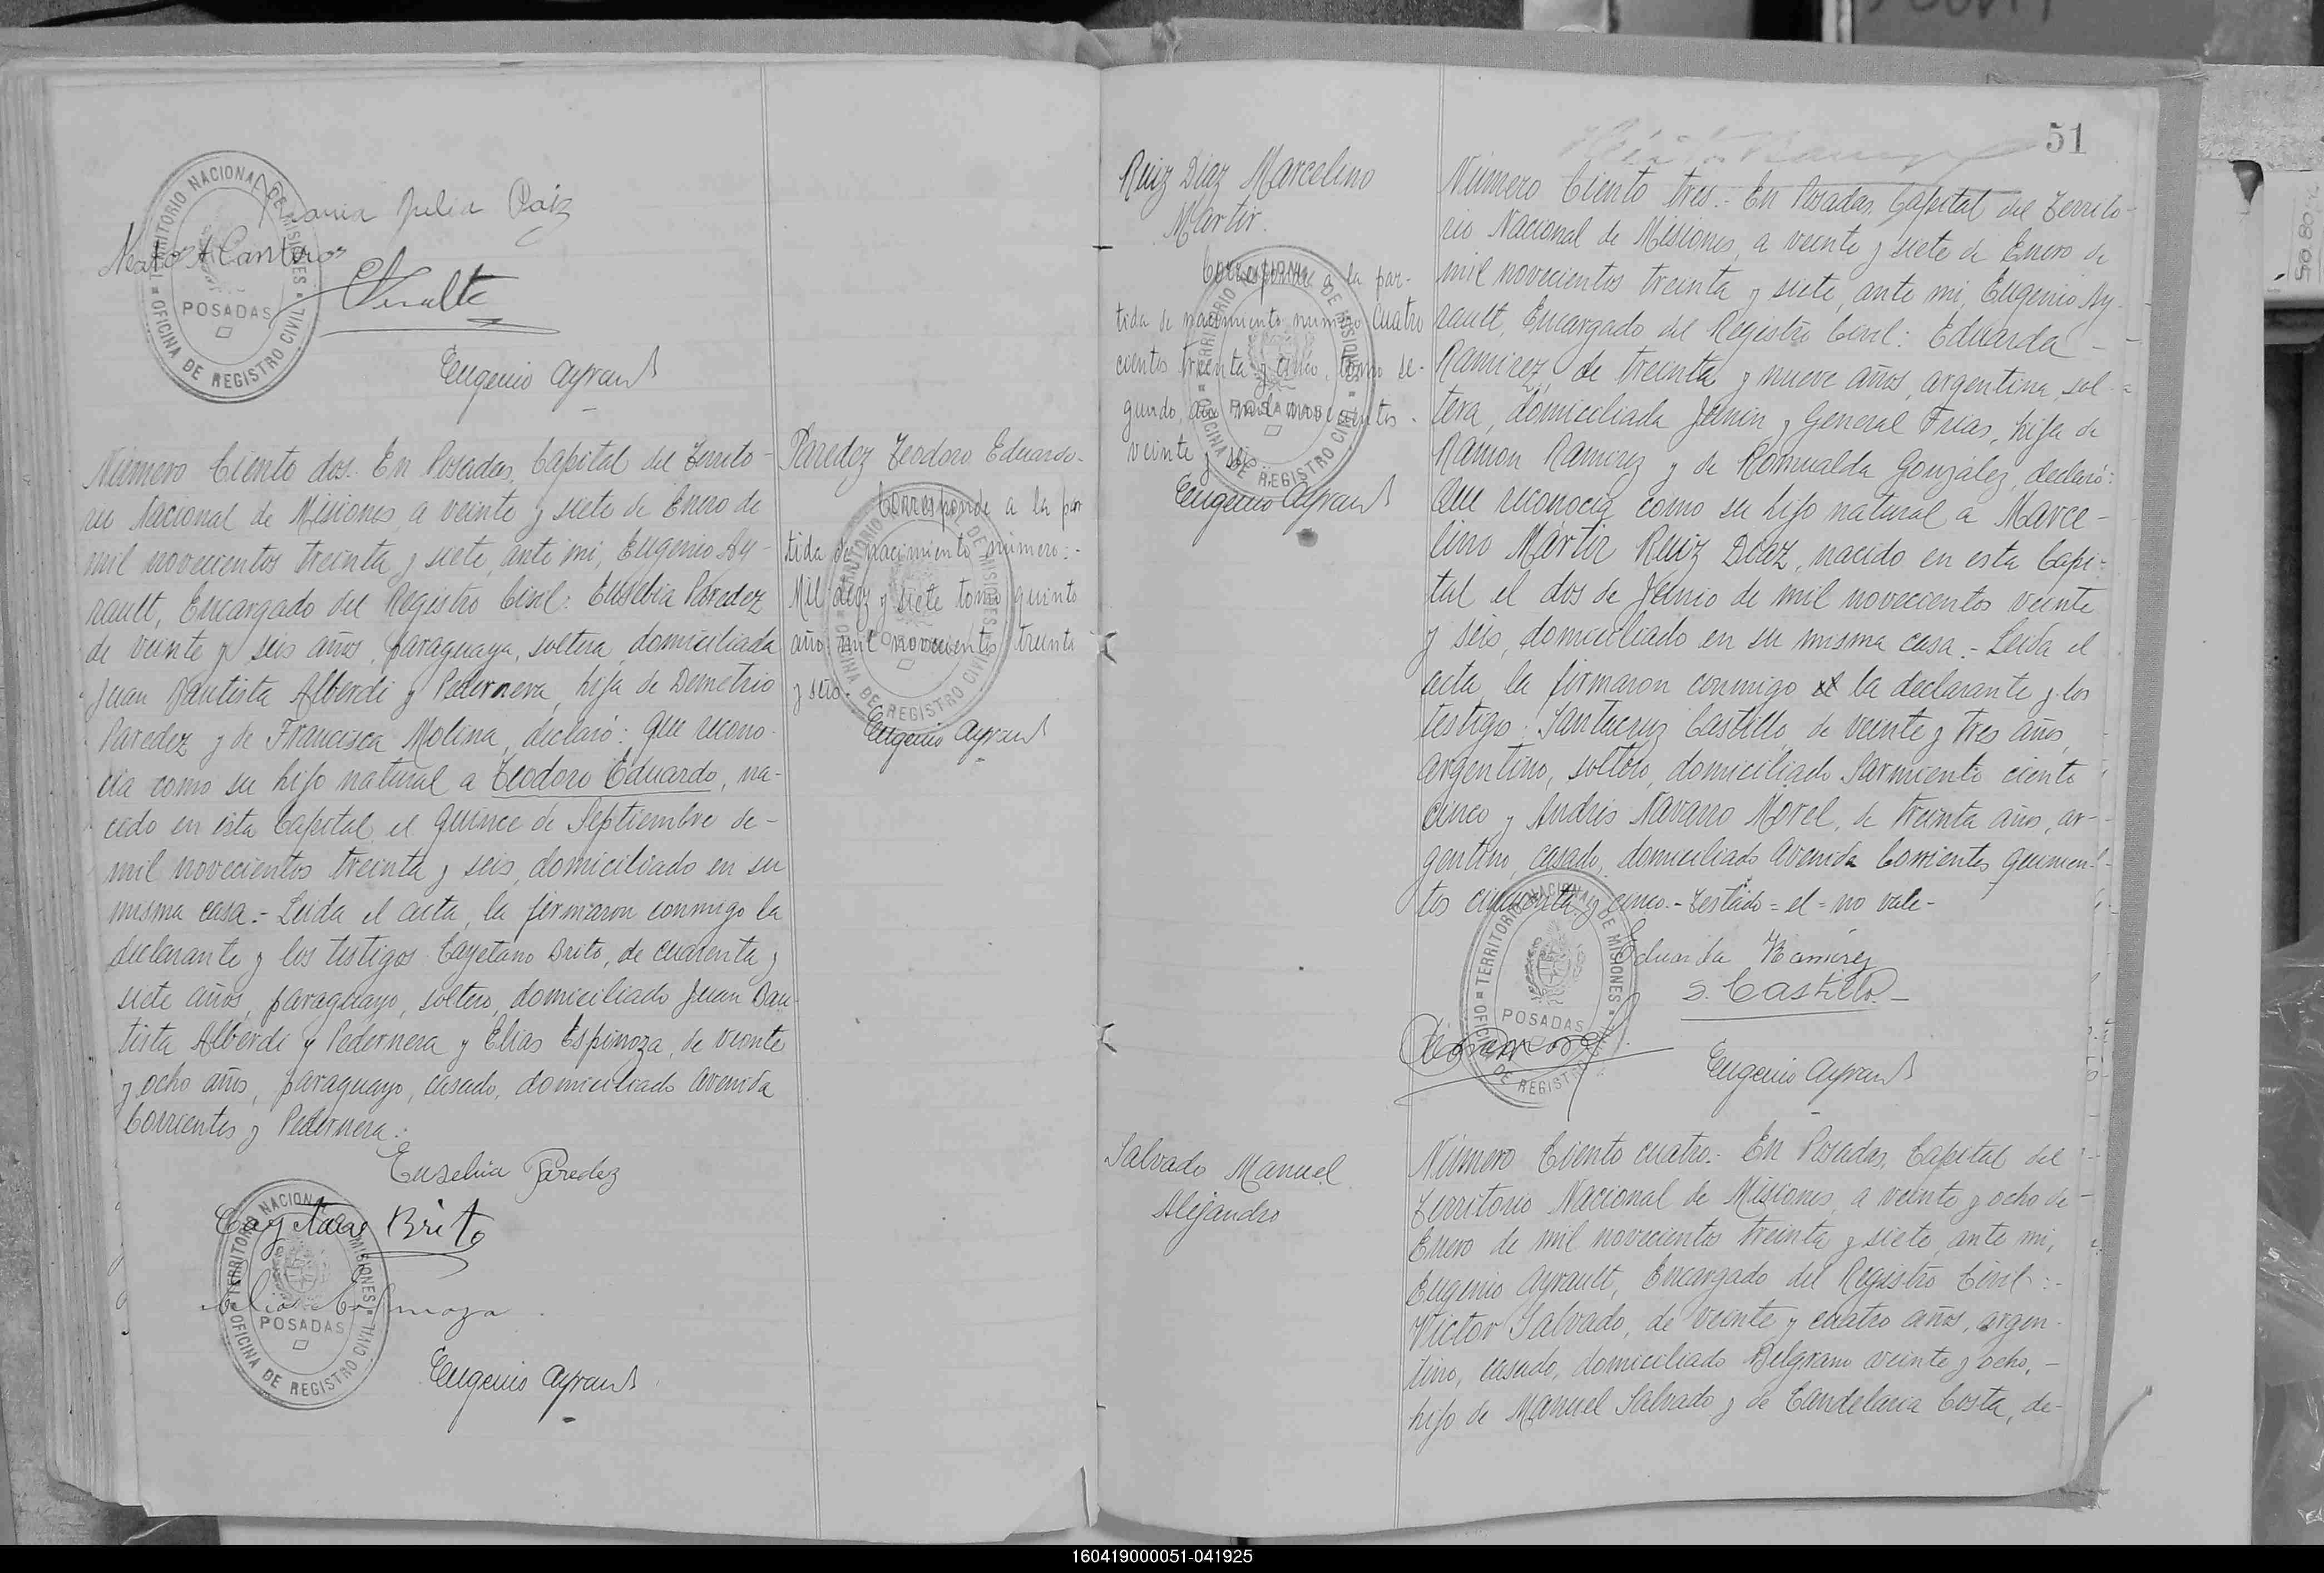 Maria Julia Paiz
Nestor A Canteros
Eugenio Ayrault
TERRITORIO NACIONAL DE MISIONES
POSADAS
OFICINA DE REGISTRO CIVIL
Número Ciento dos. En Posadas, Capital del Territo-
rio Nacional de Misiones, a veinte y siete de Enero de
mil novecientos treinta y siete, ante mi, Eugenio Ay-
rault, Encargado del Registro Civil: Eusebia Paredez
de veinte y seis años, paraguaya, soltera, domiciliada
Juan Bautista Alberdi y Pedernera, hija de Demetrio
Paredez y de Francisca Molina, declaró: que recono-
cia como su hijo natural a Teodoro Eduardo, na-
cido en esta Capital el quince de Septiembre de-
mil novecientos treinta y seis, domiciliado en su
misma casa.- Leida el acta, la firmaron conmigo la
declarante y los testigos Cayetano Brito, de cuarenta y
siete años, paraguayo, soltero, domiciliado Juan Bau-
tista Alberdi y Pedernera y Elias Espinoza, de veinte
y ocho años, paraguayo, casado, domiciliado Avenida
Corrientes y Pedernera.-
Eusebia Paredez
Cayetano Brito
Elias Espinoza
Eugenio Ayrault
TERRITORIO NACIONAL DE MISIONES
POSADAS
OFICINA DE REGISTRO CIVIL
Paredez Teodoro Eduardo.
Corresponde a la par
tida de nacimiento número:-
Mil diez y siete tomo quinto
año mil novecientos treinta
y seis.
Eugenio Ayrault
51
Ruiz Diaz Marcelino
Martir.
Corresponde a la par-
tida de nacimiento numero Cuatro
cientos treinta y cinco, tomo se-
gundo, año mil novecientos
veinte y seis
Eugenio Ayrault
Número Ciento tres.- En Posadas, Capital del Territo-
rio Nacional de Misiones, a veinte y siete de Enero de
mil novecientos treinta y siete, ante mi, Eugenio Ay-
rault, Encargado del Registro Civil: Eduarda -
Ramirez, de treinta y nueve años, argentina, sol-
tera, domiciliada Junin y General Frias, hija de
Ramon Ramirez y de Romualda González, declaró:
Que reconocia como su hijo natural a Marce-
lino Mártir Ruiz Diaz, nacido en esta Capi-
tal el dos de Junio de mil novecientos veinte
y seis, domiciliado en su misma casa.- Leida el
acta, la firmaron conmigo el la declarante y los
testigo: Santacruz Castillo, de veinte y tres años,
argentino, soltero, domiciliado Sarmiento ciento
cinco y Andrés Navarro Morel, de treinta años, ar-
gentino, casado, domiciliado Avenida Corrientes quinien-
tos cincuenta y cinco.- Testado = el = no vale-
Eduarda Ramirez
S. Castillo
Eugenio Ayrault
TERRITORIO NACIONAL DE MISIONES
POSADAS
Salvado Manuel
Alejandro
Número Ciento cuatro.- En Posadas, Capital del
Territorio Nacional de Misiones, a veinte y ocho de
Enero de mil novecientos treinta y siete, ante mi,
Eugenio Ayrault, Encargado del Registro Civil:-
Victor Salvado, de veinte y cuatro años, argen-
tino, casado, domiciliado Belgrano veinte y ocho,-
hijo de Manuel Salvado y de Candelaria Costa, de-
160419000051-041925